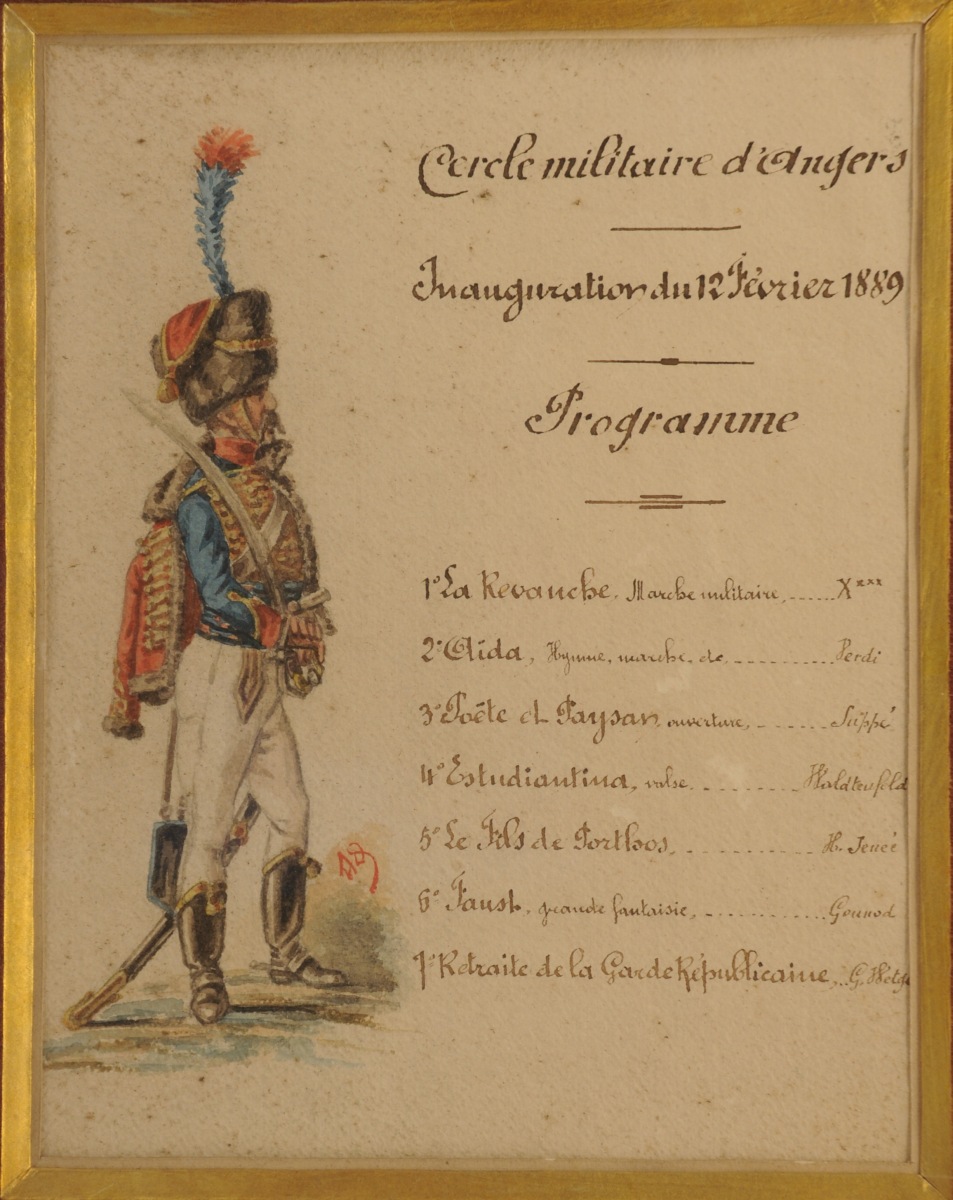 Cercle militaire d'Angers
Inauguration du 12 Février 1889
Programme
1° La Revanche, Marche militaire, ...... X***
2° Aïda, Hymne, marche, etc, ............ Verdi
3° Poëte et Paysan, ouverture, ....... Suppé
4° Estudiantina, valse, ......... Waldteufeld
5° Le Fils de Porthos, ............ H.
6° Faust, grande fantaisie, ............ Gounod
7° Retraite de la Garde Républicaine, ... G.